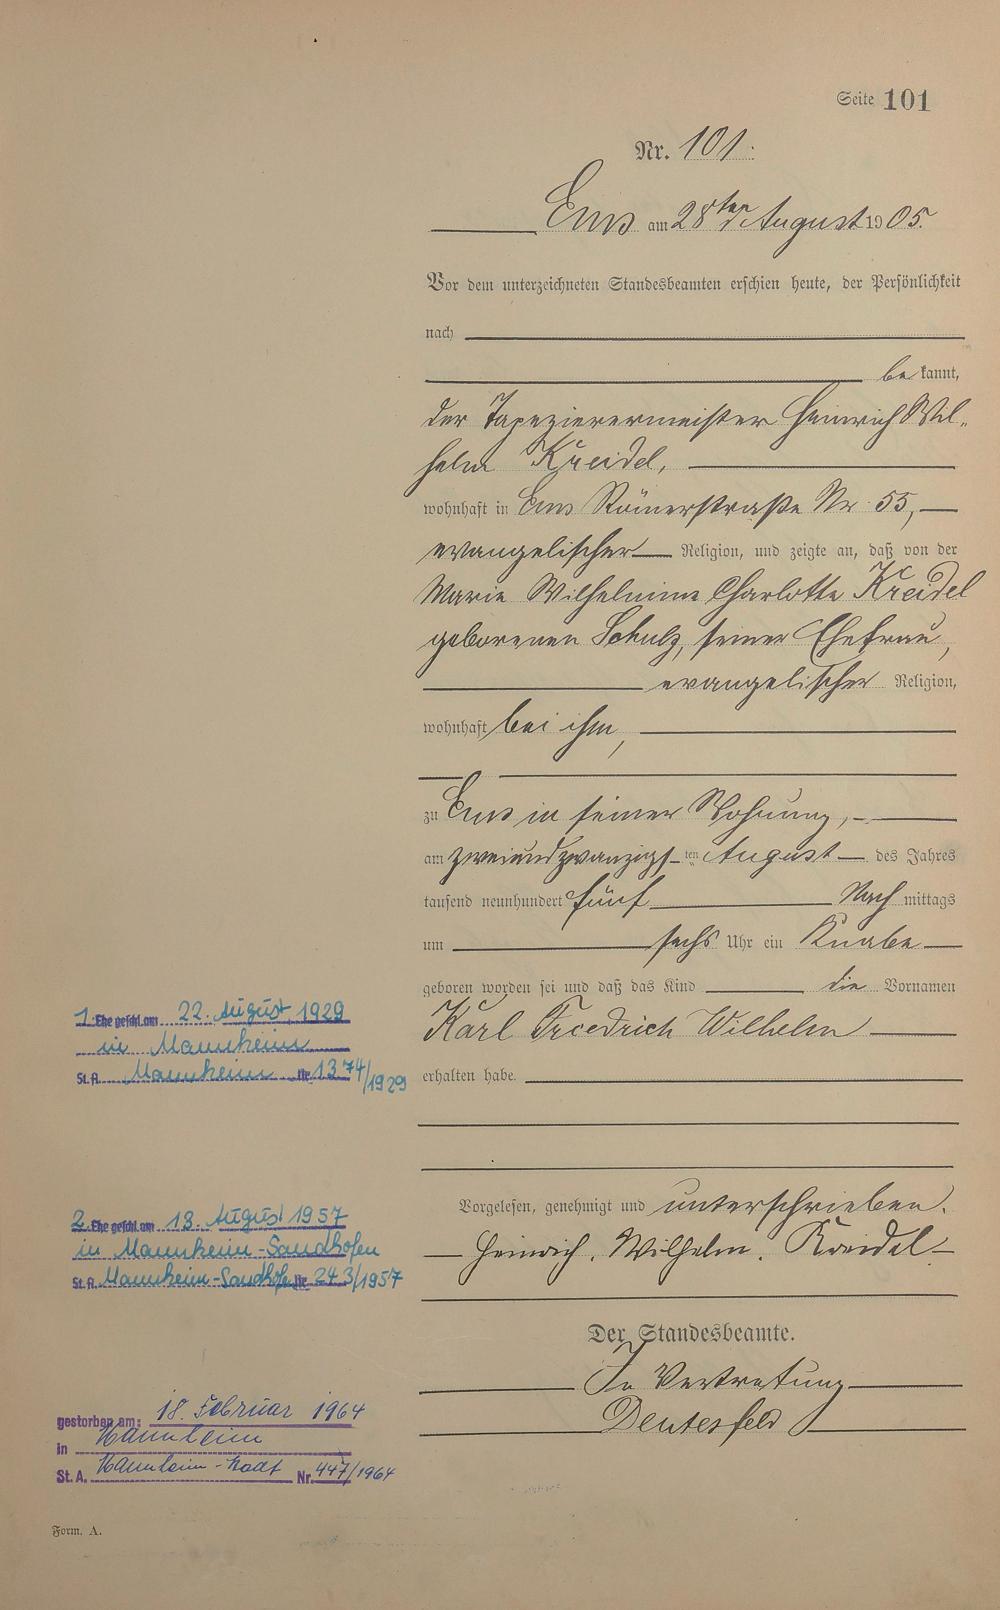 Seite 101
Nr. 101.
Ems am 28ten August 1905.
Vor dem unterzeichneten Standesbeamten erschien heute, der Persönlichkeit
nach
be kannt,
der Tapezierermeister Heinrich Wil-
helm Kreidel,
wohnhaft in Ems Römerstraße Nr 55,
evangelischer Religion, und zeigte an, daß von der
Marie Wilhelmine Charlotte Kreidel
geborenen Schulz, seiner Ehefrau,
evangelischer Religion,
wohnhaft bei ihm,
zu Ems in seiner Wohnung,
am zweiundzwanzigs ten August des Jahres
tausend neunhundert fünf Nach mittags
um sechs Uhr ein Knabe
geboren worden sei und daß das Kind die Vornamen
Karl Friedrich Wilhelm
erhalten habe.
Vorgelesen, genehmigt und unterschrieben.
Heinrich. Wilhelm. Kreidel
Der Standesbeamte.
In Vertretung
Deutesfeld
1. Ehe geschl. am 22. August 1929
in Mannheim
St. A. Mannheim Nr. 1374/1929
2. Ehe geschl. am 13. August 1957
in Mannheim-Sandhofen
St. A. Mannheim-Sandhofen Nr. 243/1957
gestorben am: 18. Februar 1964
in Mannheim
St. A. Mannheim-Stadt Nr. 447/1964
Form. A.